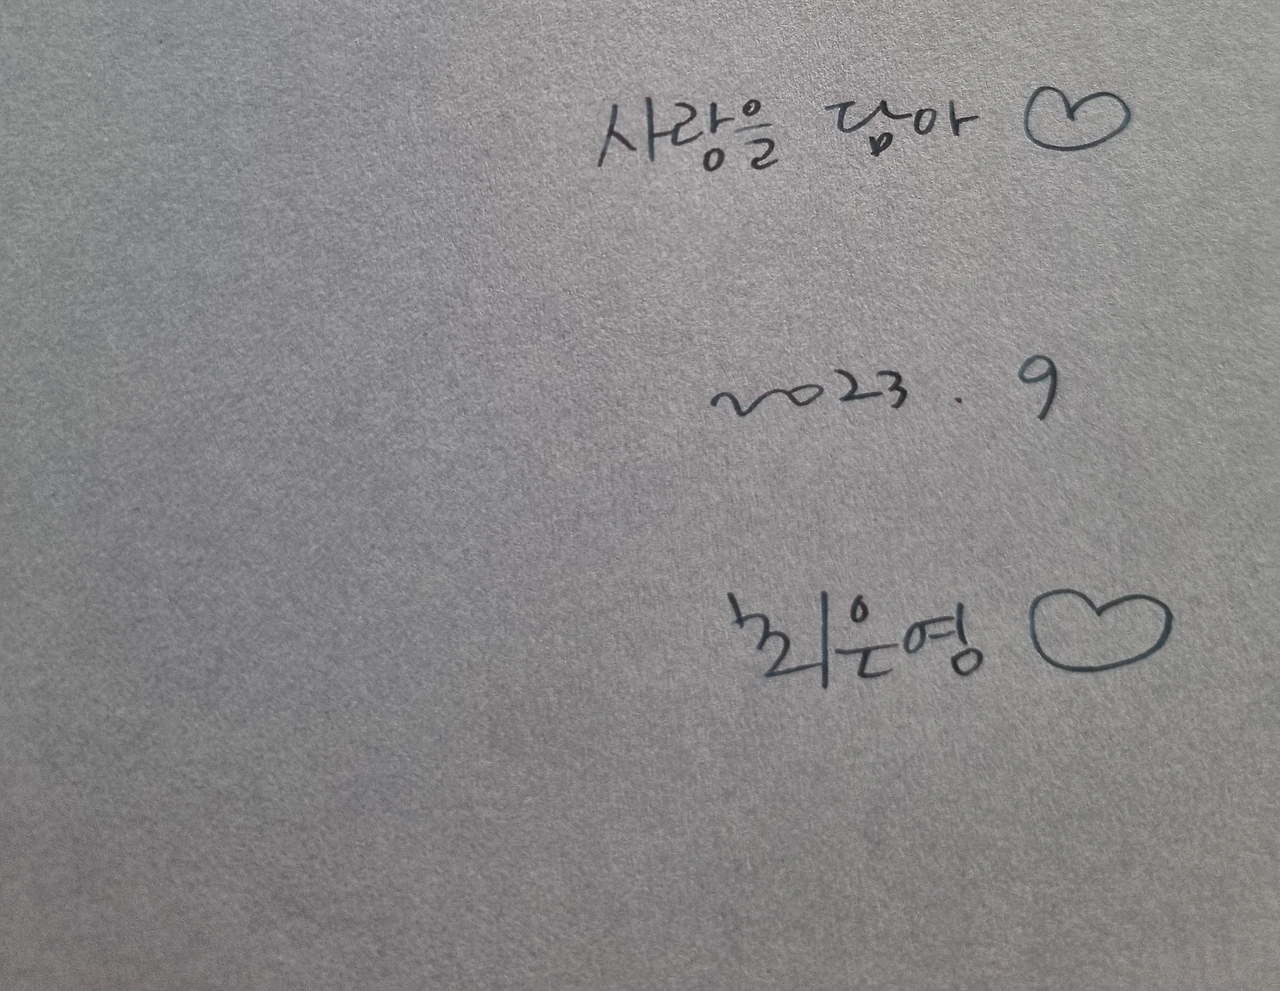 사랑을 담아 ♡
2023. 9
최은영 ♡